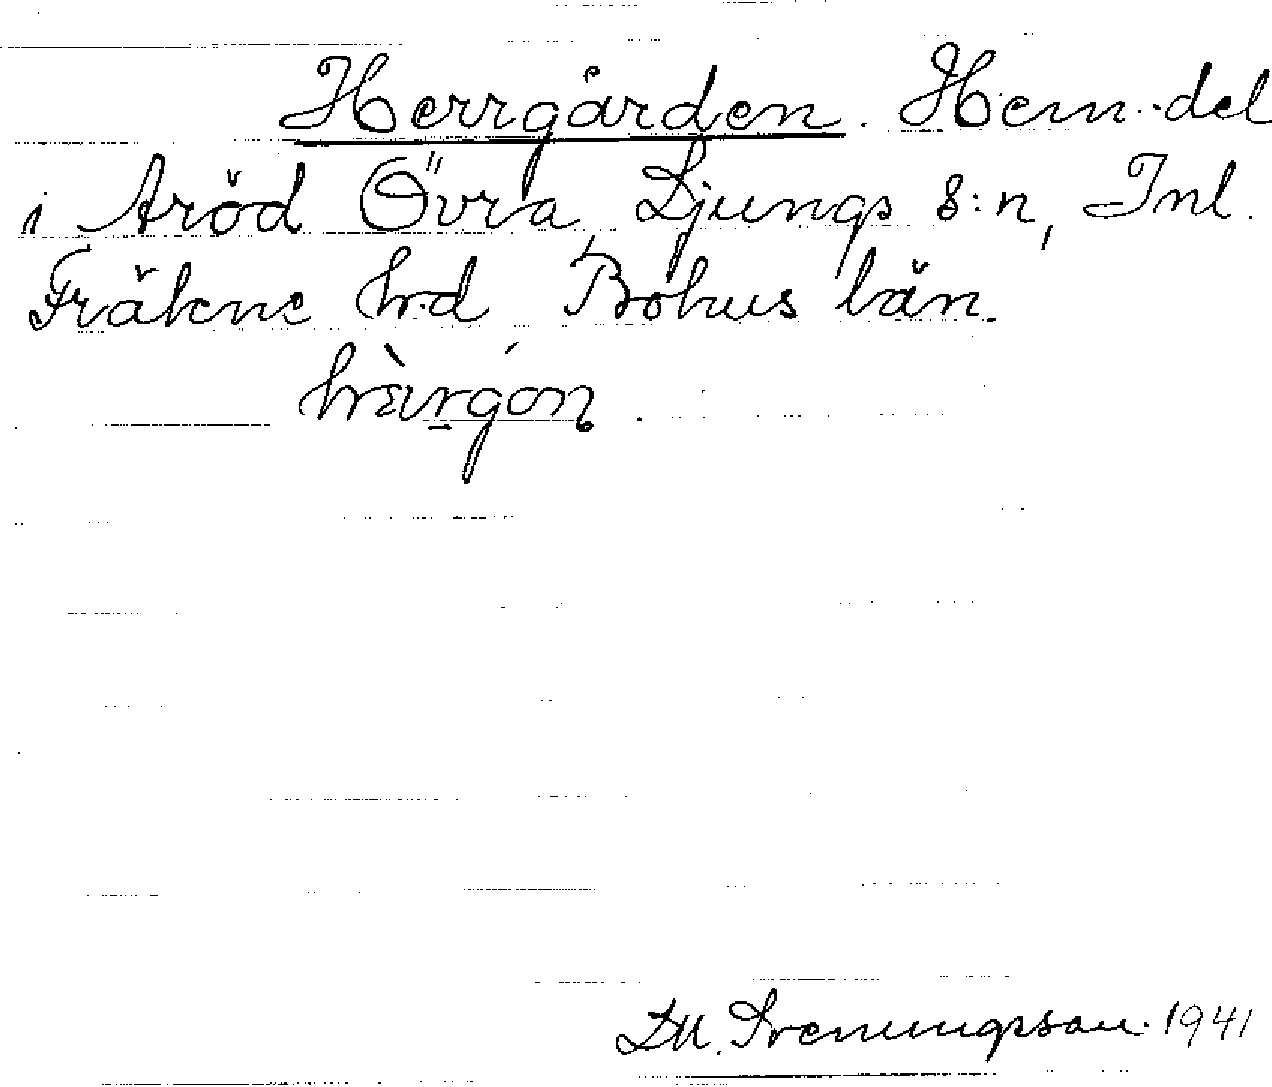 Herrgården. Hem.del
i Aröd Övra, Ljungs s:n, Inl.
Fräkne h.d Bohus län.
Th. Svenungsson. 1941